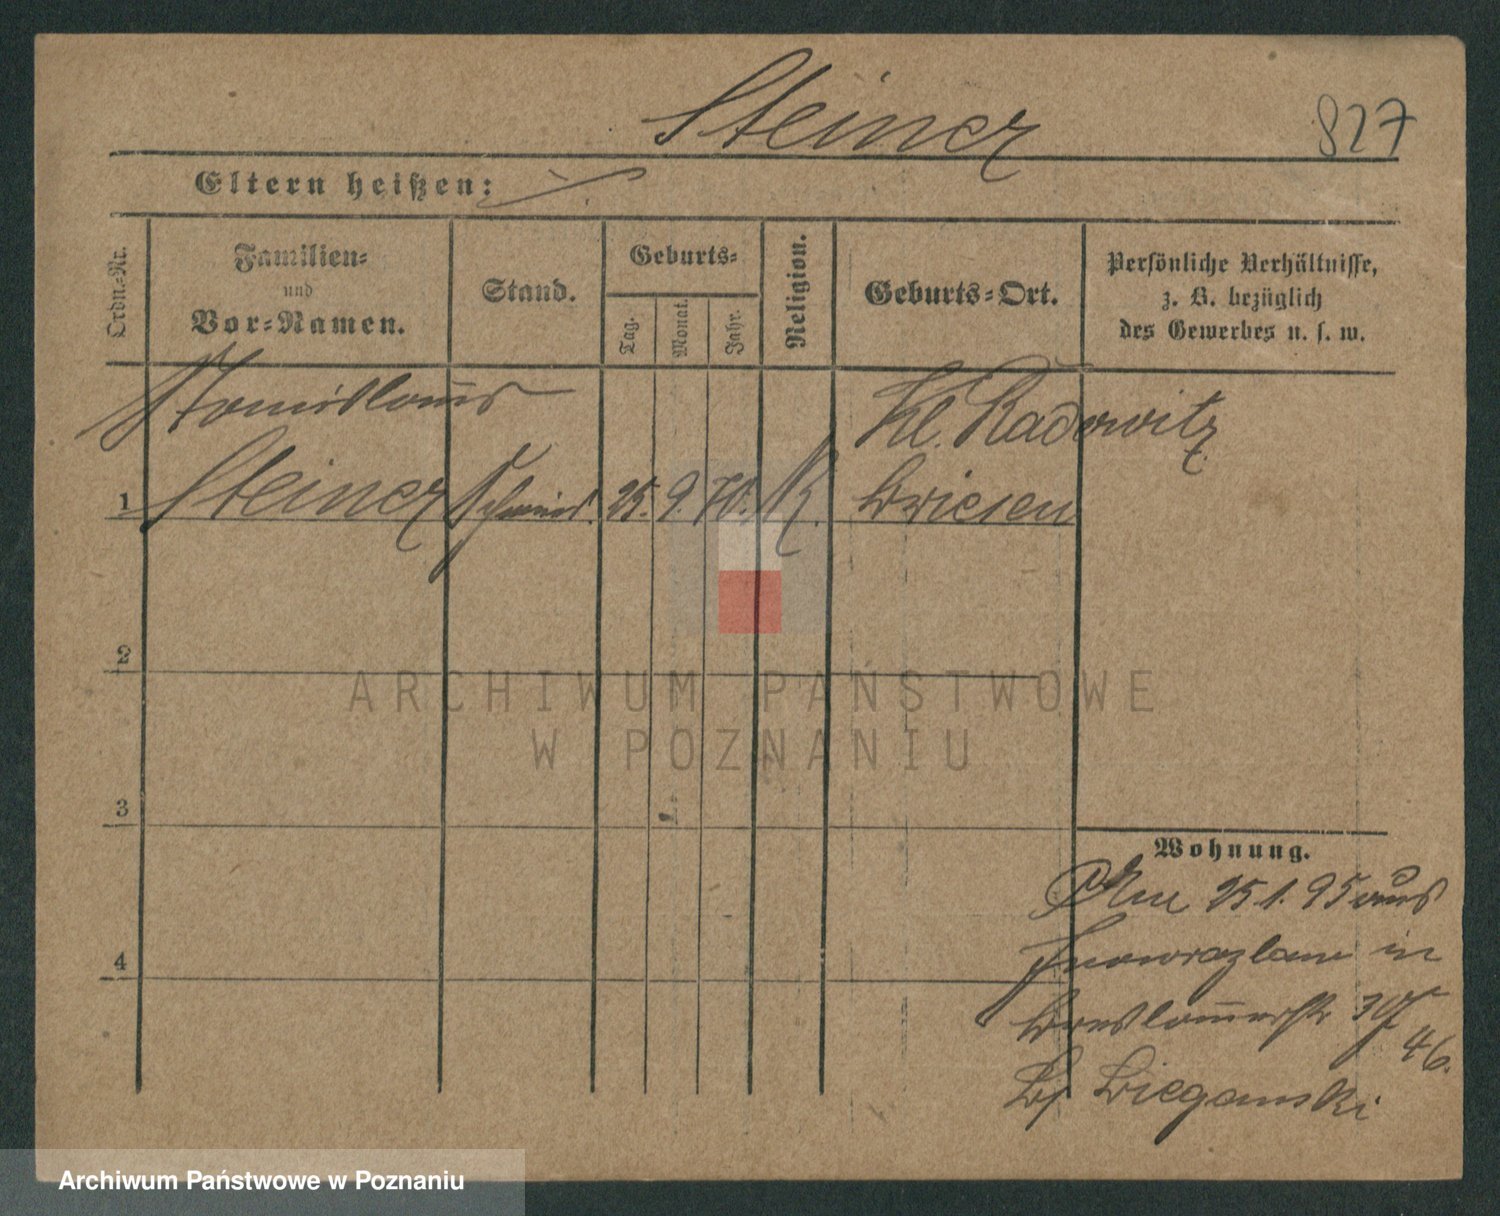 Steiner
827
Eltern heißen:
Ordn.-Nr.
Familien-
und
Vor-Namen.
Stand.
Geburts-
Tag.
Monat.
Jahr.
Religion.
Geburts-Ort.
Persönliche Verhältnisse,
z. B. bezüglich
des Gewerbes u. s. w.
Stanislaus Kl. Radowitz
1 Steiner Schmied. 25. 9. 70. K. Briesen
2
3
4
Wohnung.
25 1. 95 aus
Inowrazlaw in
Breslauerstr
46.
Bieganski
ARCHIWUM PAŃSTWOWE
W POZNANIU
Archiwum Państwowe w Poznaniu